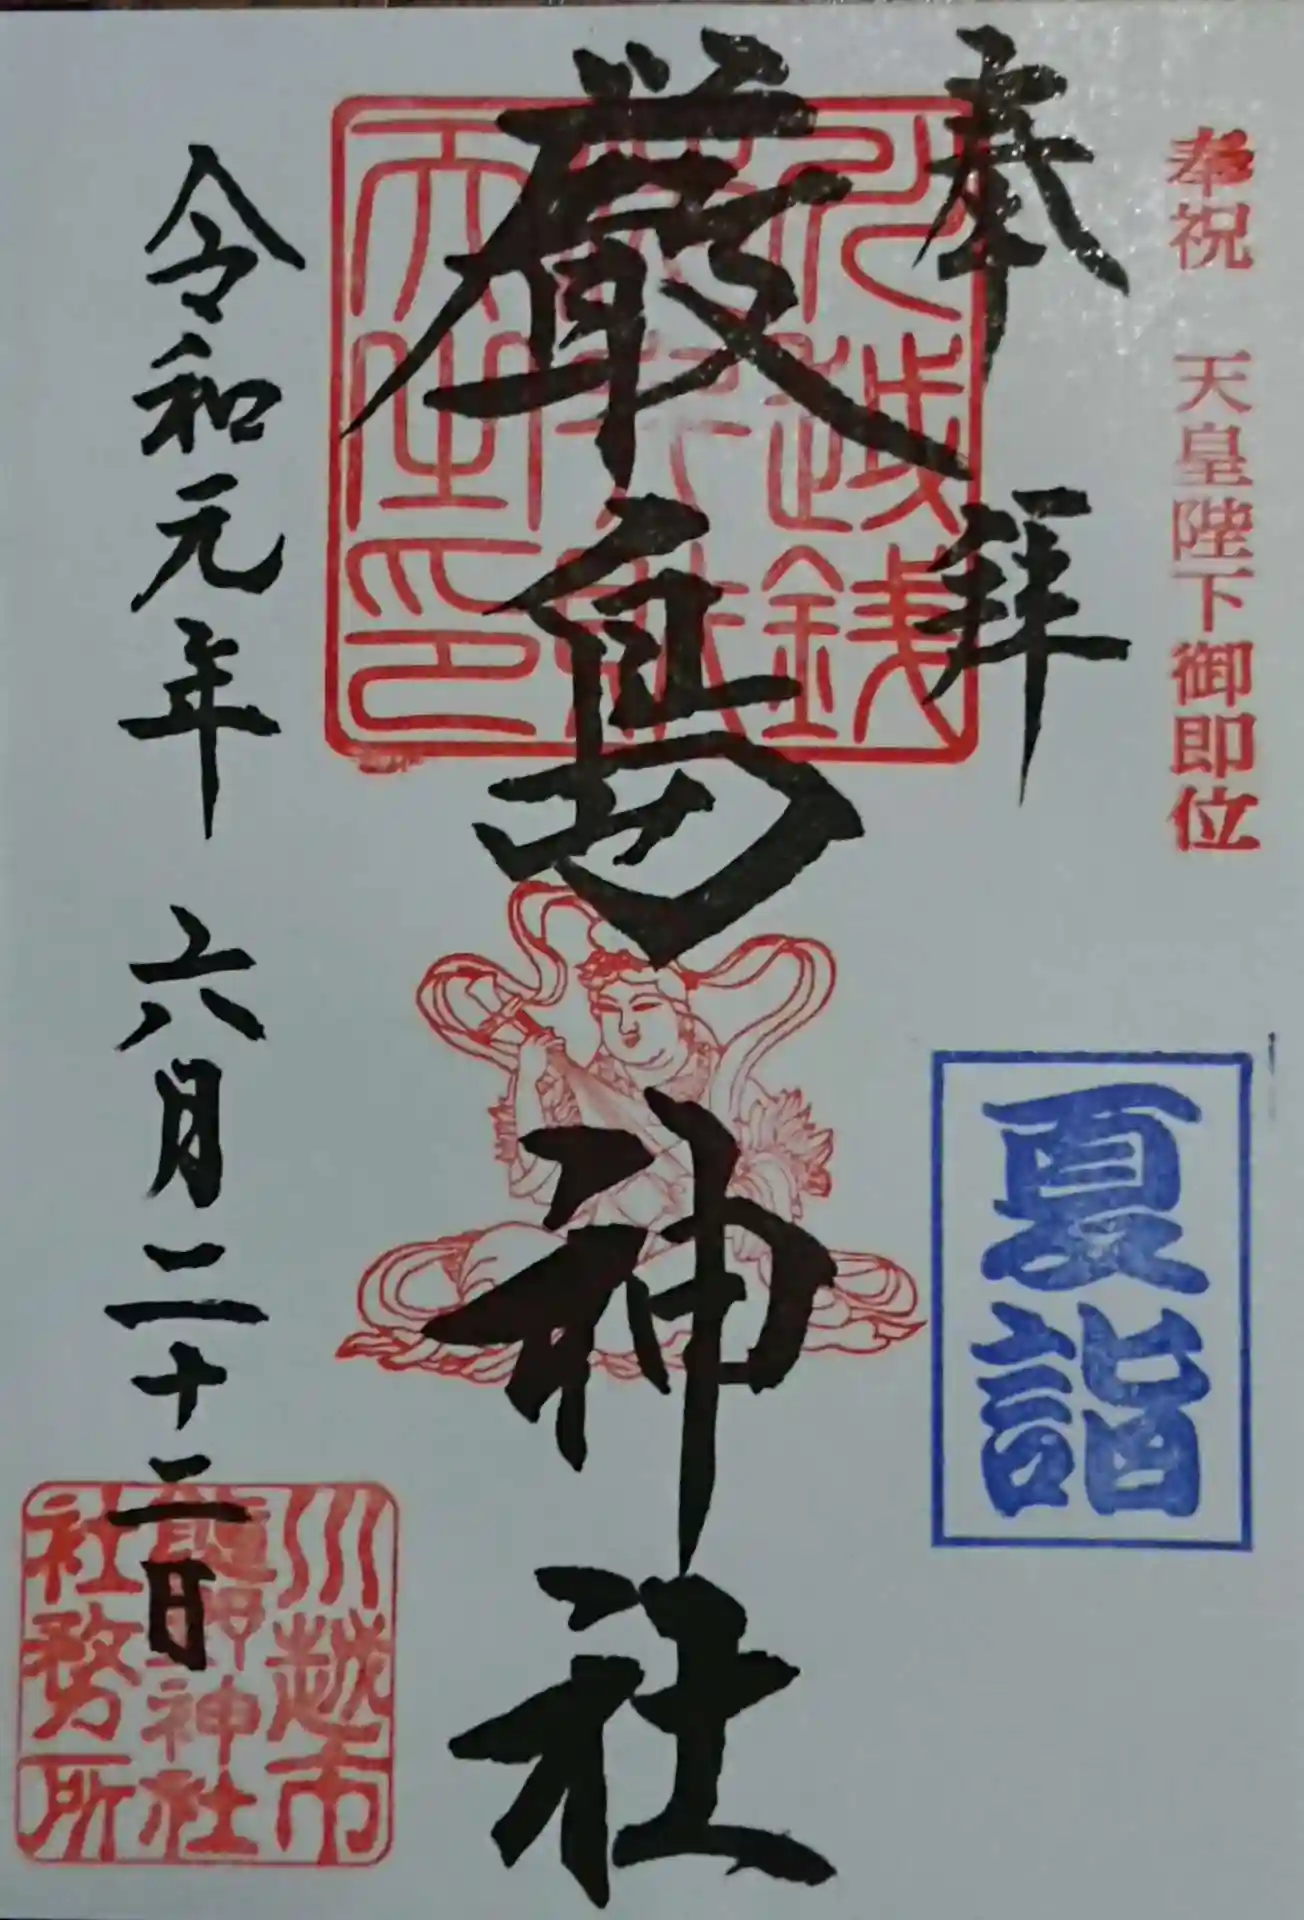 奉祝 天皇陛下御即位
奉拝
夏詣
厳島神社
令和元年 六月二十二日
川越市
熊野神社
社務所